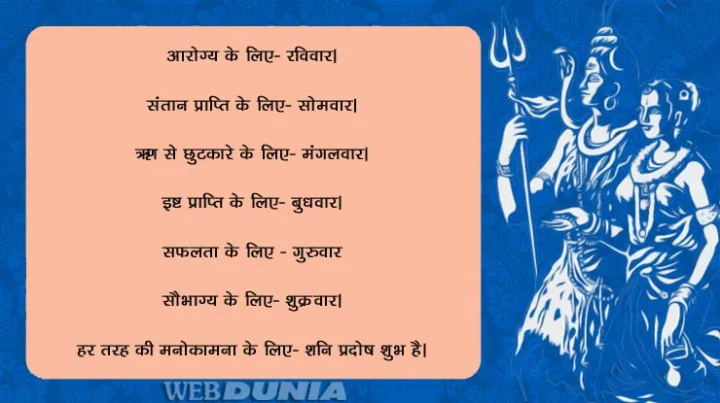 आरोग्य के लिए- रविवार|
संतान प्राप्ति के लिए- सोमवार|
ऋण से छुटकारे के लिए- मंगलवार|
इष्ट प्राप्ति के लिए- बुधवार|
सफलता के लिए - गुरुवार
सौभाग्य के लिए- शुक्रवार|
हर तरह की मनोकामना के लिए- शनि प्रदोष शुभ है|
WEBDUNIA